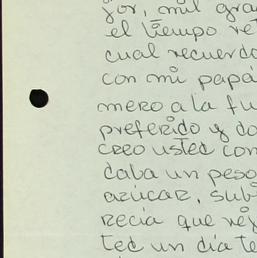 jor, mil gra
el tiempo re
cual recuerdo
con mi papá
mero a la fu
preferido y do
creo usted con
daba un peso
azúcar, sub
recía que rej
ted un día te